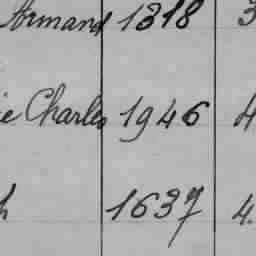 Armand 1318 3
e Charles 1946 4
h 1637 4.